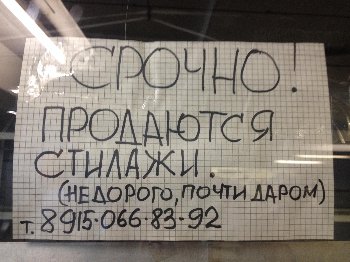 СРОЧНО!
ПРОДАЮТСЯ
СТИЛАЖИ.
(НЕДОРОГО, ПОЧТИ ДАРОМ)
т. 8915-066-83-92